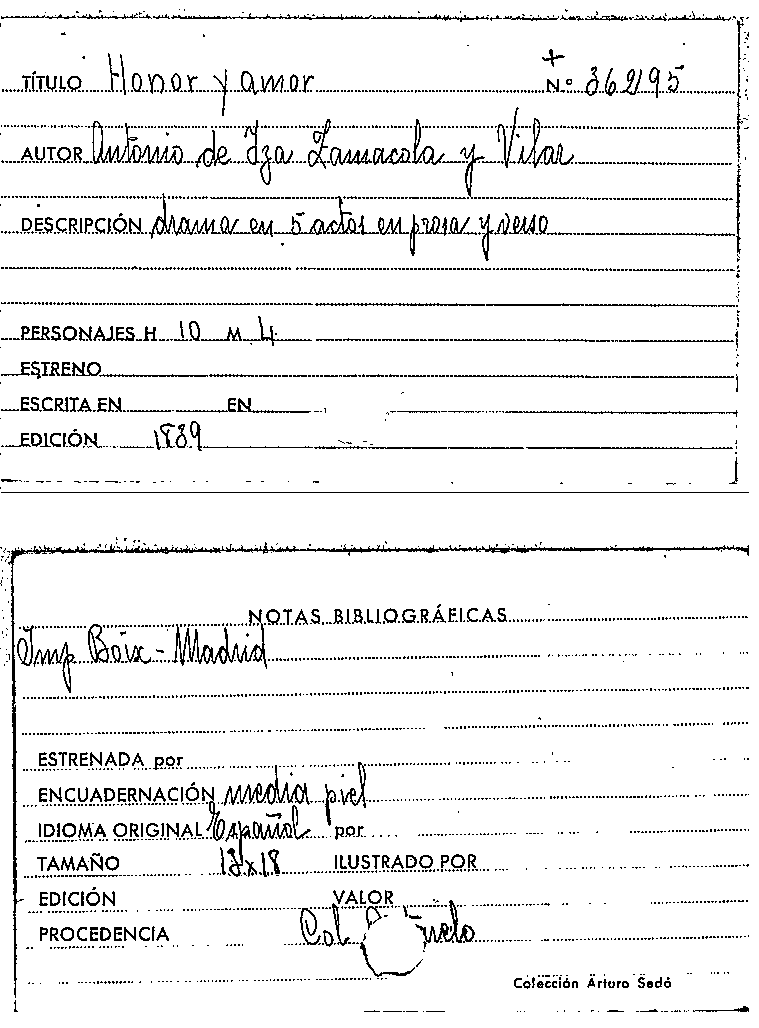 TÍTULO Honor y amor Nº 36295
AUTOR Antonio de Iza Zamacola y Vilar
DESCRIPCIÓN drama en 5 actos en prosa y verso
PERSONAJES H 10 M 4
ESTRENO
ESCRITA EN EN
EDICIÓN 1839
NOTAS BIBLIOGRÁFICAS
Imp Boix - Madrid
ESTRENADA por
ENCUADERNACIÓN media piel
IDIOMA ORIGINAL Español por
TAMAÑO ILUSTRADO POR
EDICIÓN VALOR
PROCEDENCIA Col
Colección Arturo Sedó